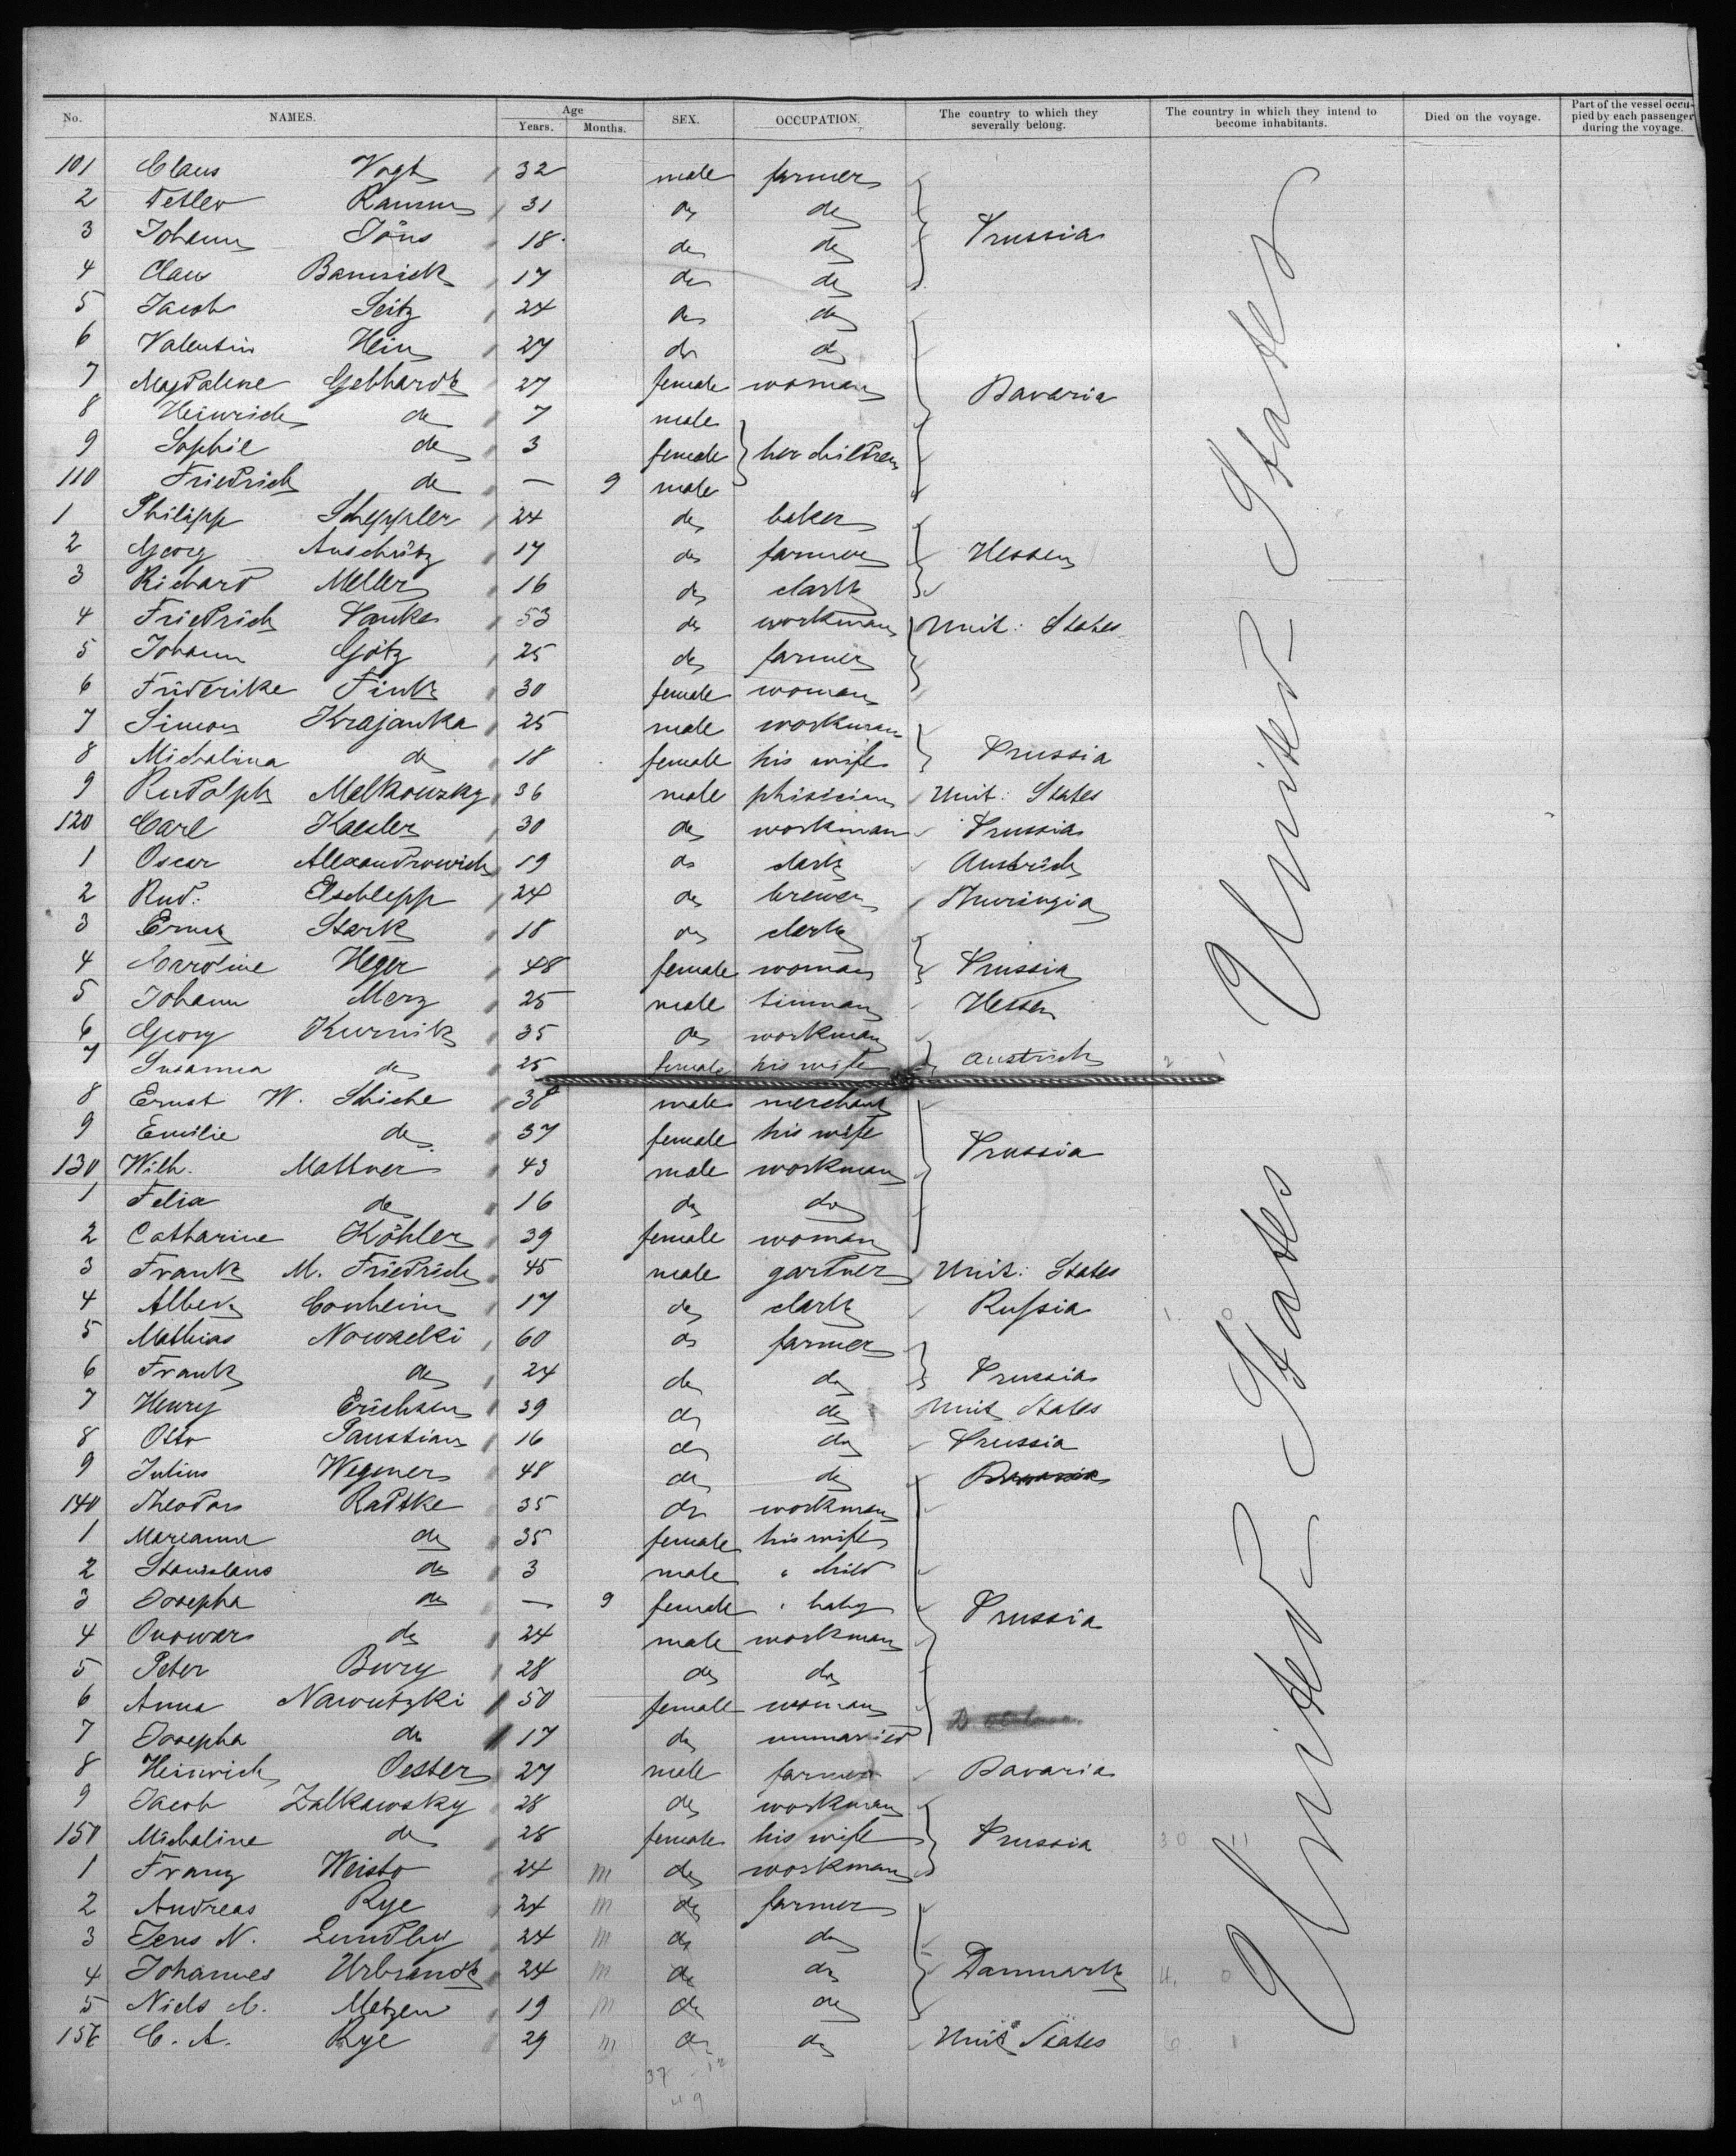 No. NAMES. Age Years. Months. SEX. OCCUPATION. The country to which they severally belong. The country in which they intend to become inhabitants. Died on the voyage. Part of the vessel occupied by each passenger during the voyage.
101 Claus Vogt 32 male farmer
2 Detlev Ramm 31 do do
3 Johann Jöns 18 do do Prussia
4 Claus 17 do do
5 Jacob Seitz 24 do do
6 Valentin Hein 27 do do
7 Magdalene Gebhardt 27 female woman Bavaria
8 Heinrich do 7 male
9 Sophie do 3 female her children
110 Friedrich do — 9 male
1 Philipp Scheppler 24 do baker
2 Georg Anschütz 17 do farmer Hessen
3 Richard Meller 16 do clark
4 Friedrich Panke 53 do workman Unit: States
5 Johann Götz 25 do farmer
6 Friderike Fink 30 female woman
7 Simon Krajanka 25 male workman
8 Michalina do 18 female his wife Prussia
9 Rudolph Malkowzky 36 male phisician Unit: States
120 Carl Kaesler 30 do workman Prussia
1 Oscar Alexandrowich 19 do clark Austrich
2 Rud: Elschlepp 24 do brewer Thuringia
3 Ernst Stark 18 do clark
4 Caroline Heger 48 female woman Prussia
5 Johann Merz 25 male tinman Hessen
6 Georg Kurnik 35 do workman
7 Susanna do 25 female his wife Austrich 2 1
8 Ernst W. Schiche 38 male merchant
9 Emilie do 37 female his wife Prussia
130 Wilh. Mattner 43 male workman
1 Felia do 16 do do
2 Catharine Köhler 39 female woman
3 Frank M. Friedrich 45 male gartner Unit: States
4 Albert Conheim 17 do clark Russia 1. 0
5 Mathias Nowacki 60 do farmer
6 Frank do 24 do do Prussia
7 Henry Erichsen 39 do do Unit States
8 Otto Paustian 16 do do Prussia
9 Julius Wegener 48 do do
140 Theodor Radtke 35 do workman
1 Marianna do 35 female his wife
2 Stanislaus do 3 male " child
3 Josepha do — 9 female " baby Prussia
4 do 24 male workman
5 Peter Bury 28 do do
6 Anna Nawutzki 50 female woman
7 Josepha do 17 do unmaried
8 Heinrich Oester 27 male farmer Bavaria
9 Jacob Zalkawsky 28 do workman
150 Michaline do 28 female his wife Prussia 30 11
1 Franz Weisto 24 m do workman
2 Andreas Rye 24 m do farmer
3 Jens N. Lundby 24 m do do
4 Johannes Urbrandt 24 m do do Danmark 4. 0
5 Niels C. Metzen 19 m do do
156 C. A. Rye 29 m do do Unit States 6 1
37 12
49
United States
United States